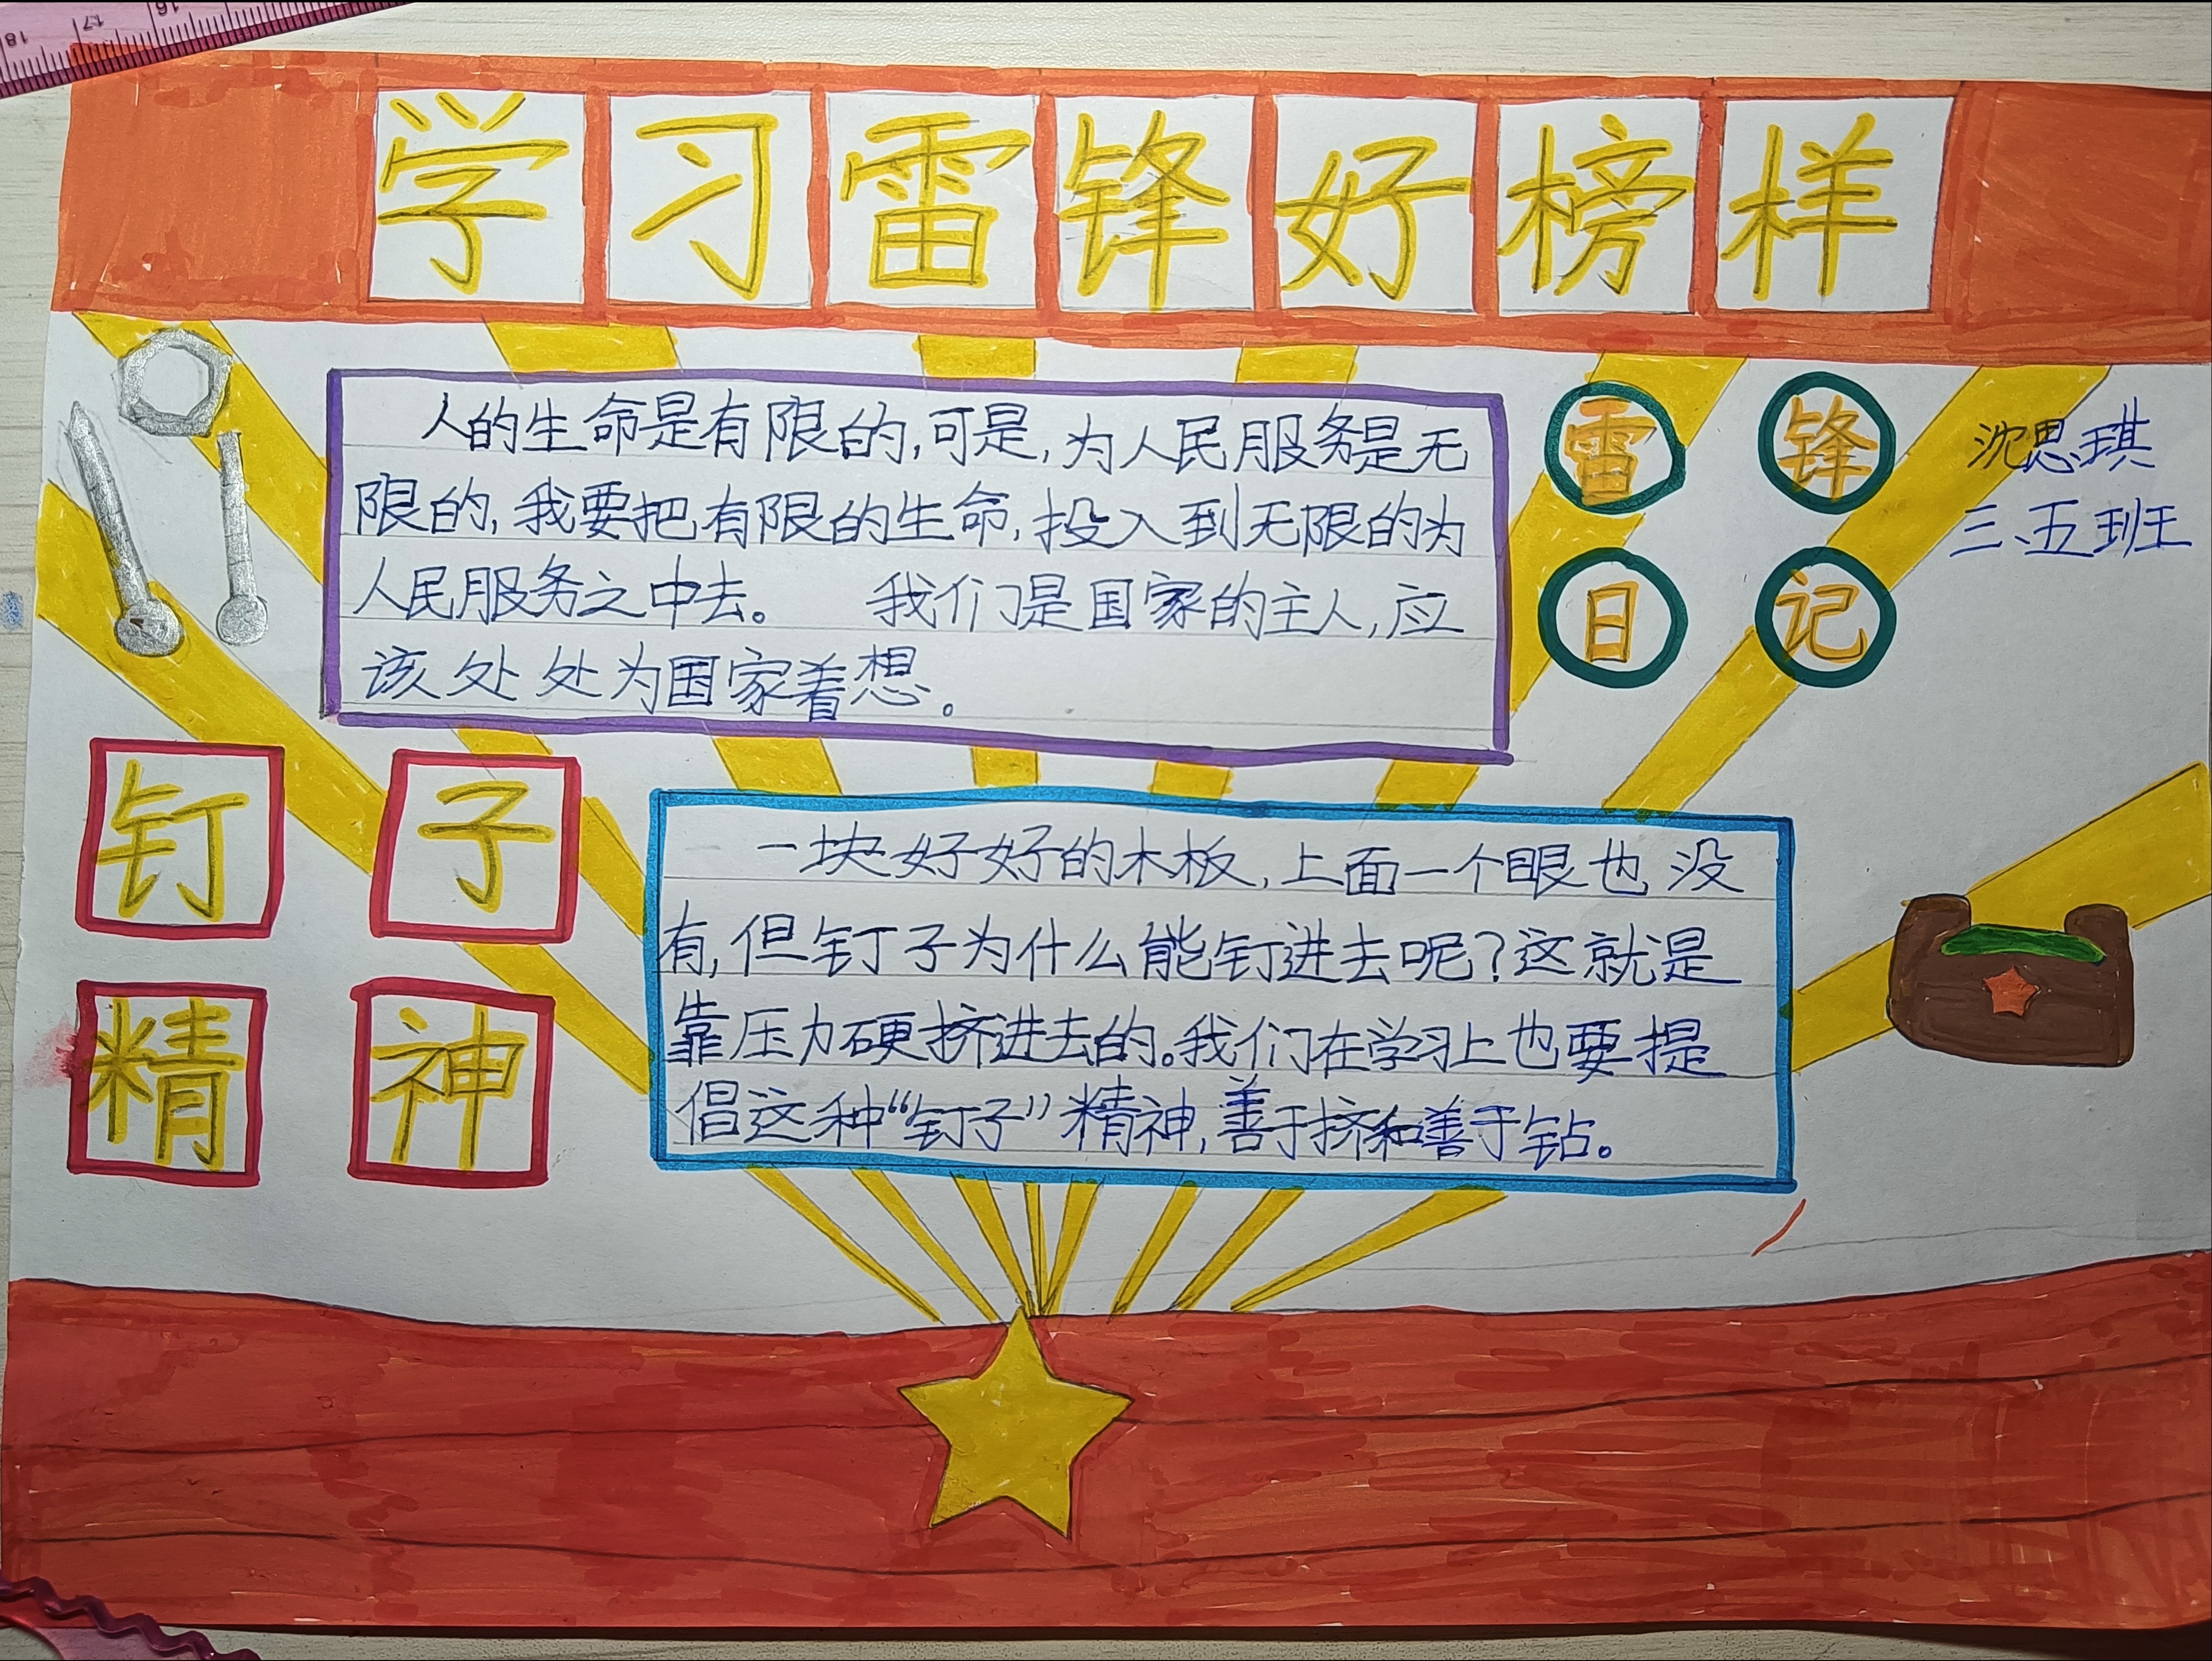 学习雷锋好榜样
人的生命是有限的,可是,为人民服务是无
限的,我要把有限的生命,投入到无限的为
人民服务之中去。 我们是国家的主人,应
该处处为国家着想。
雷锋
日记
沈思琪
三、五班
钉子
精神
一块好好的木板,上面一个眼也没
有,但钉子为什么能钉进去呢?这就是
靠压力硬挤进去的。我们在学习上也要提
倡这种“钉子”精神,善于挤和善于钻。
16
17
18